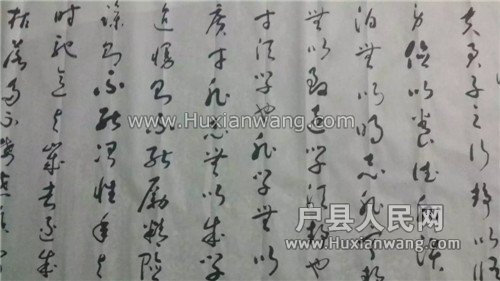 夫君子之行静以修
身俭以养德非淡
泊無以明志非宁静
無以致远学须静也
才须学也非学無以
广才非志無以成学
慢则不能励精险
躁则不能冶性年与
时驰意与岁去遂成
枯落多不接世
www.Huxianwang.com
www.Huxianwang.com
户县人民网
www.Huxianwang.com